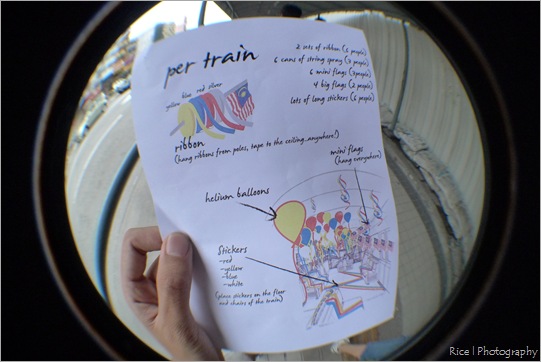 per train
2 sets of ribbon (6 people)
6 cans of string spray (3 people)
6 mini flags (3people)
4 big flags (2 people)
lots of long stickers (6 people)
yellow blue red silver
ribbon
(hang ribbons from poles, tape to the ceiling..anywhere!)
mini flags
(hang everywhere)
helium balloons
Stickers
-red
-yellow
-blue
-white
(place stickers on the floor
and chairs of the train)
Rice | Photography